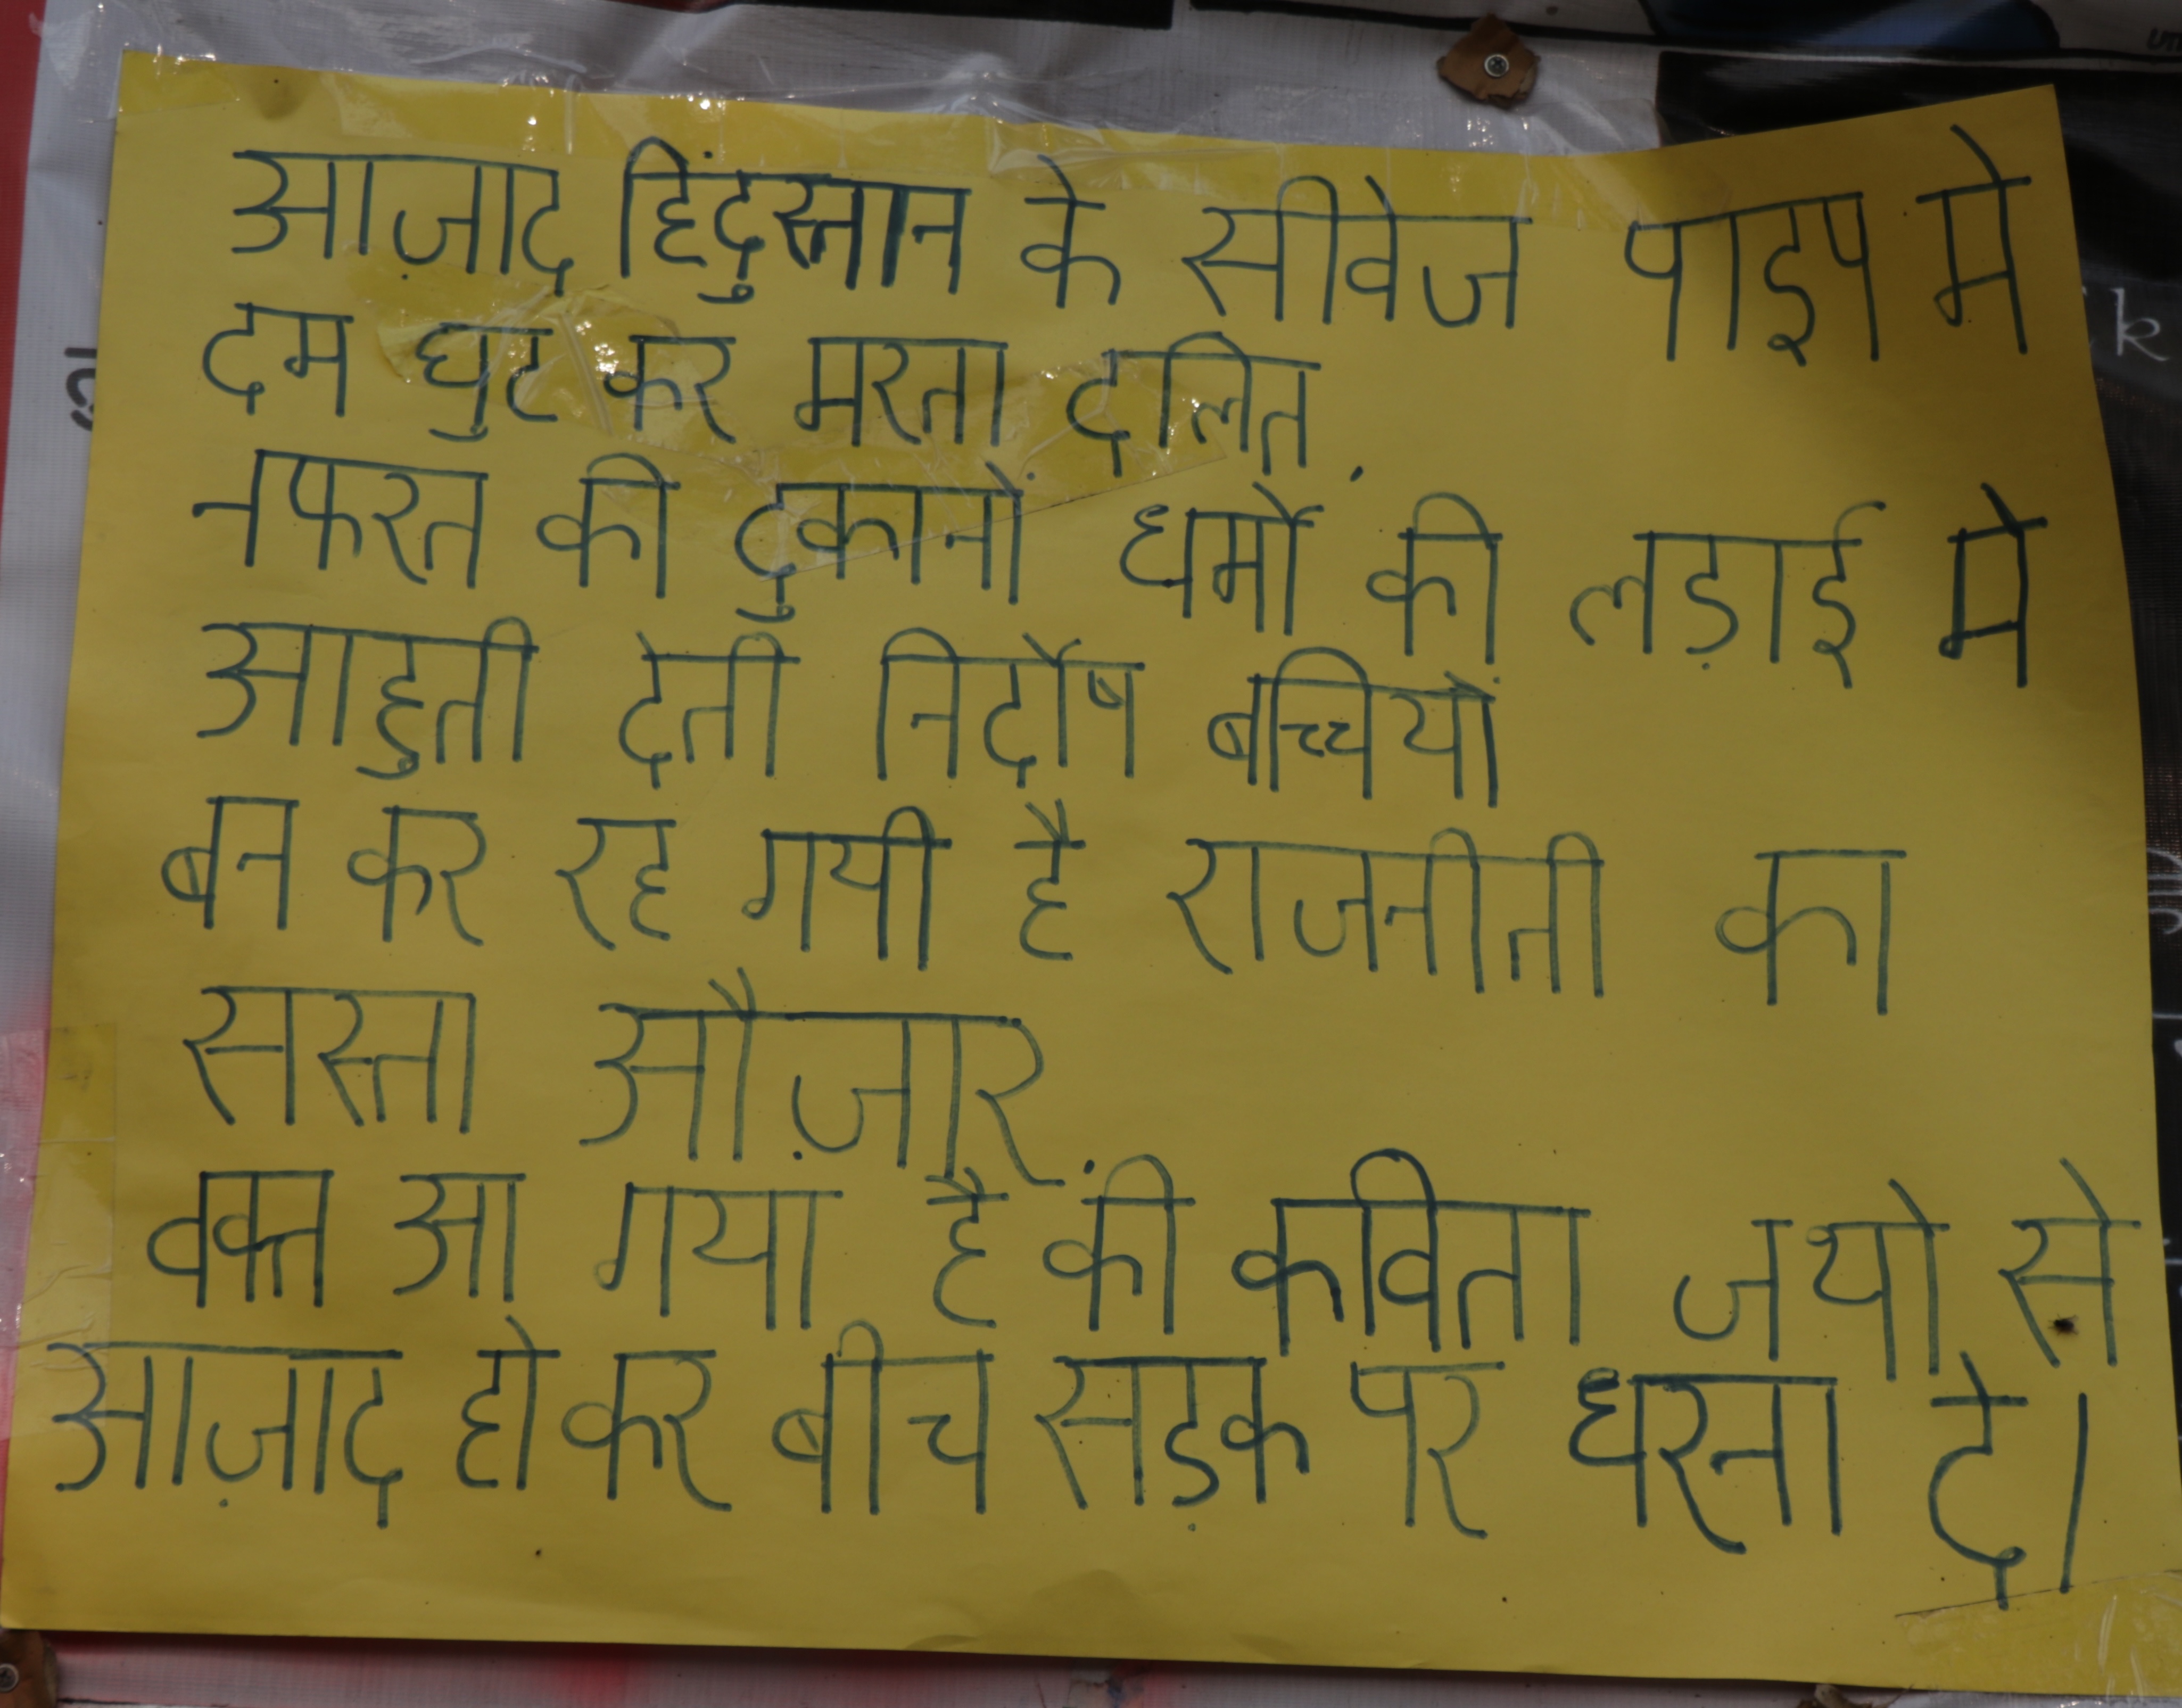 आज़ाद हिंदुस्तान के सीवेज पाइप मे
दम घुट कर मरता दलित,
नफरत की दुकानों धर्मों की लड़ाई मे
आहुती देती निर्दोष बच्चियों
बन कर रह गयी है राजनीती का
सस्ता औज़ार,
वक्त आ गया है की कविता जथो से
आज़ाद होकर बीच सड़क पर धरना दे।